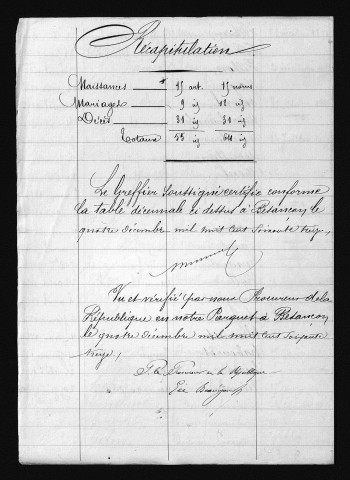 Récapitulation
Naissances 15 act. 15 noms
Mariages 9 id 18 id
Décès 31 id 31 id
Totaux 55 id 64 id
Le Greffier soussigné certifie conforme
la table décennale ci dessus à Besançon le
quatre décembre mil huit cent soixante treize,
Vu et vérifié par nous Procureur de la
République en notre Parquet à Besançon
le quatre décembre mil huit cent soixante
treize,
P. le Procureur de la République